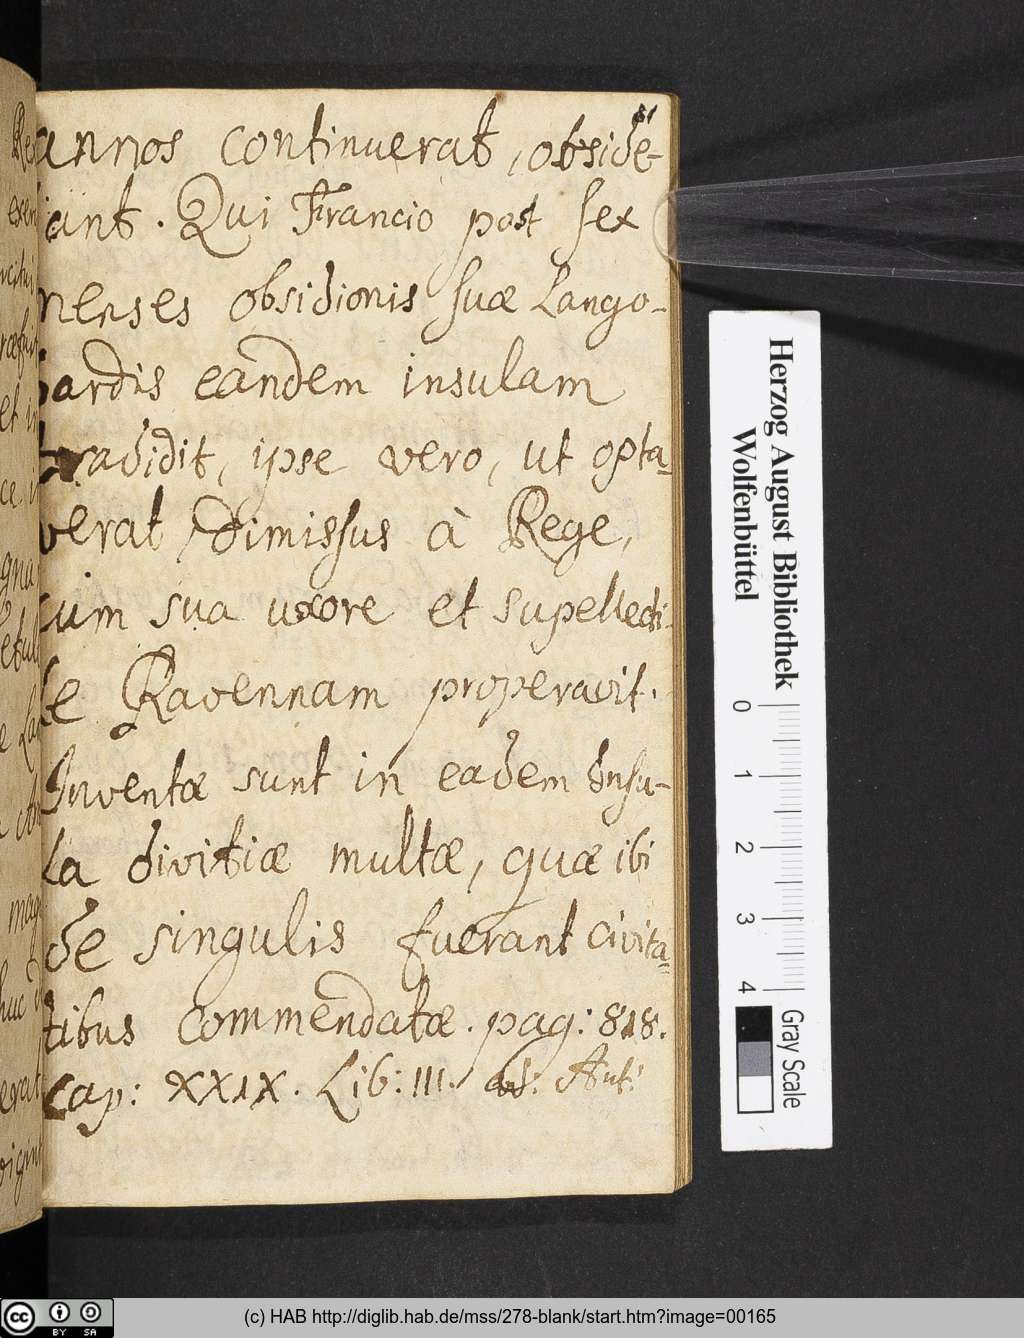 81
annos continuerat, obside-
bant. Qui Francio post sex
menses obsidionis suæ Lango-
bardis eandem insulam
tradidit, ipse vero, ut opta-
verat, dimissus à Rege,
cum sua uxore et supellecti-
le Ravennam properavit.
Inventæ sunt in eadem Insu-
la divitiæ multæ, quæ ibi
de singulis fuerant civita-
tibus commendatæ. pag: 818.
cap: XXIX. Lib: III.
Herzog August Bibliothek
Wolfenbüttel
0 1 2 3 4
Gray Scale
cc BY SA
(c) HAB http://diglib.hab.de/mss/278-blank/start.htm?image=00165